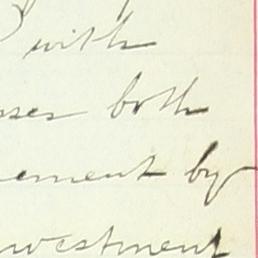 with
sses both
ement by
nvestment